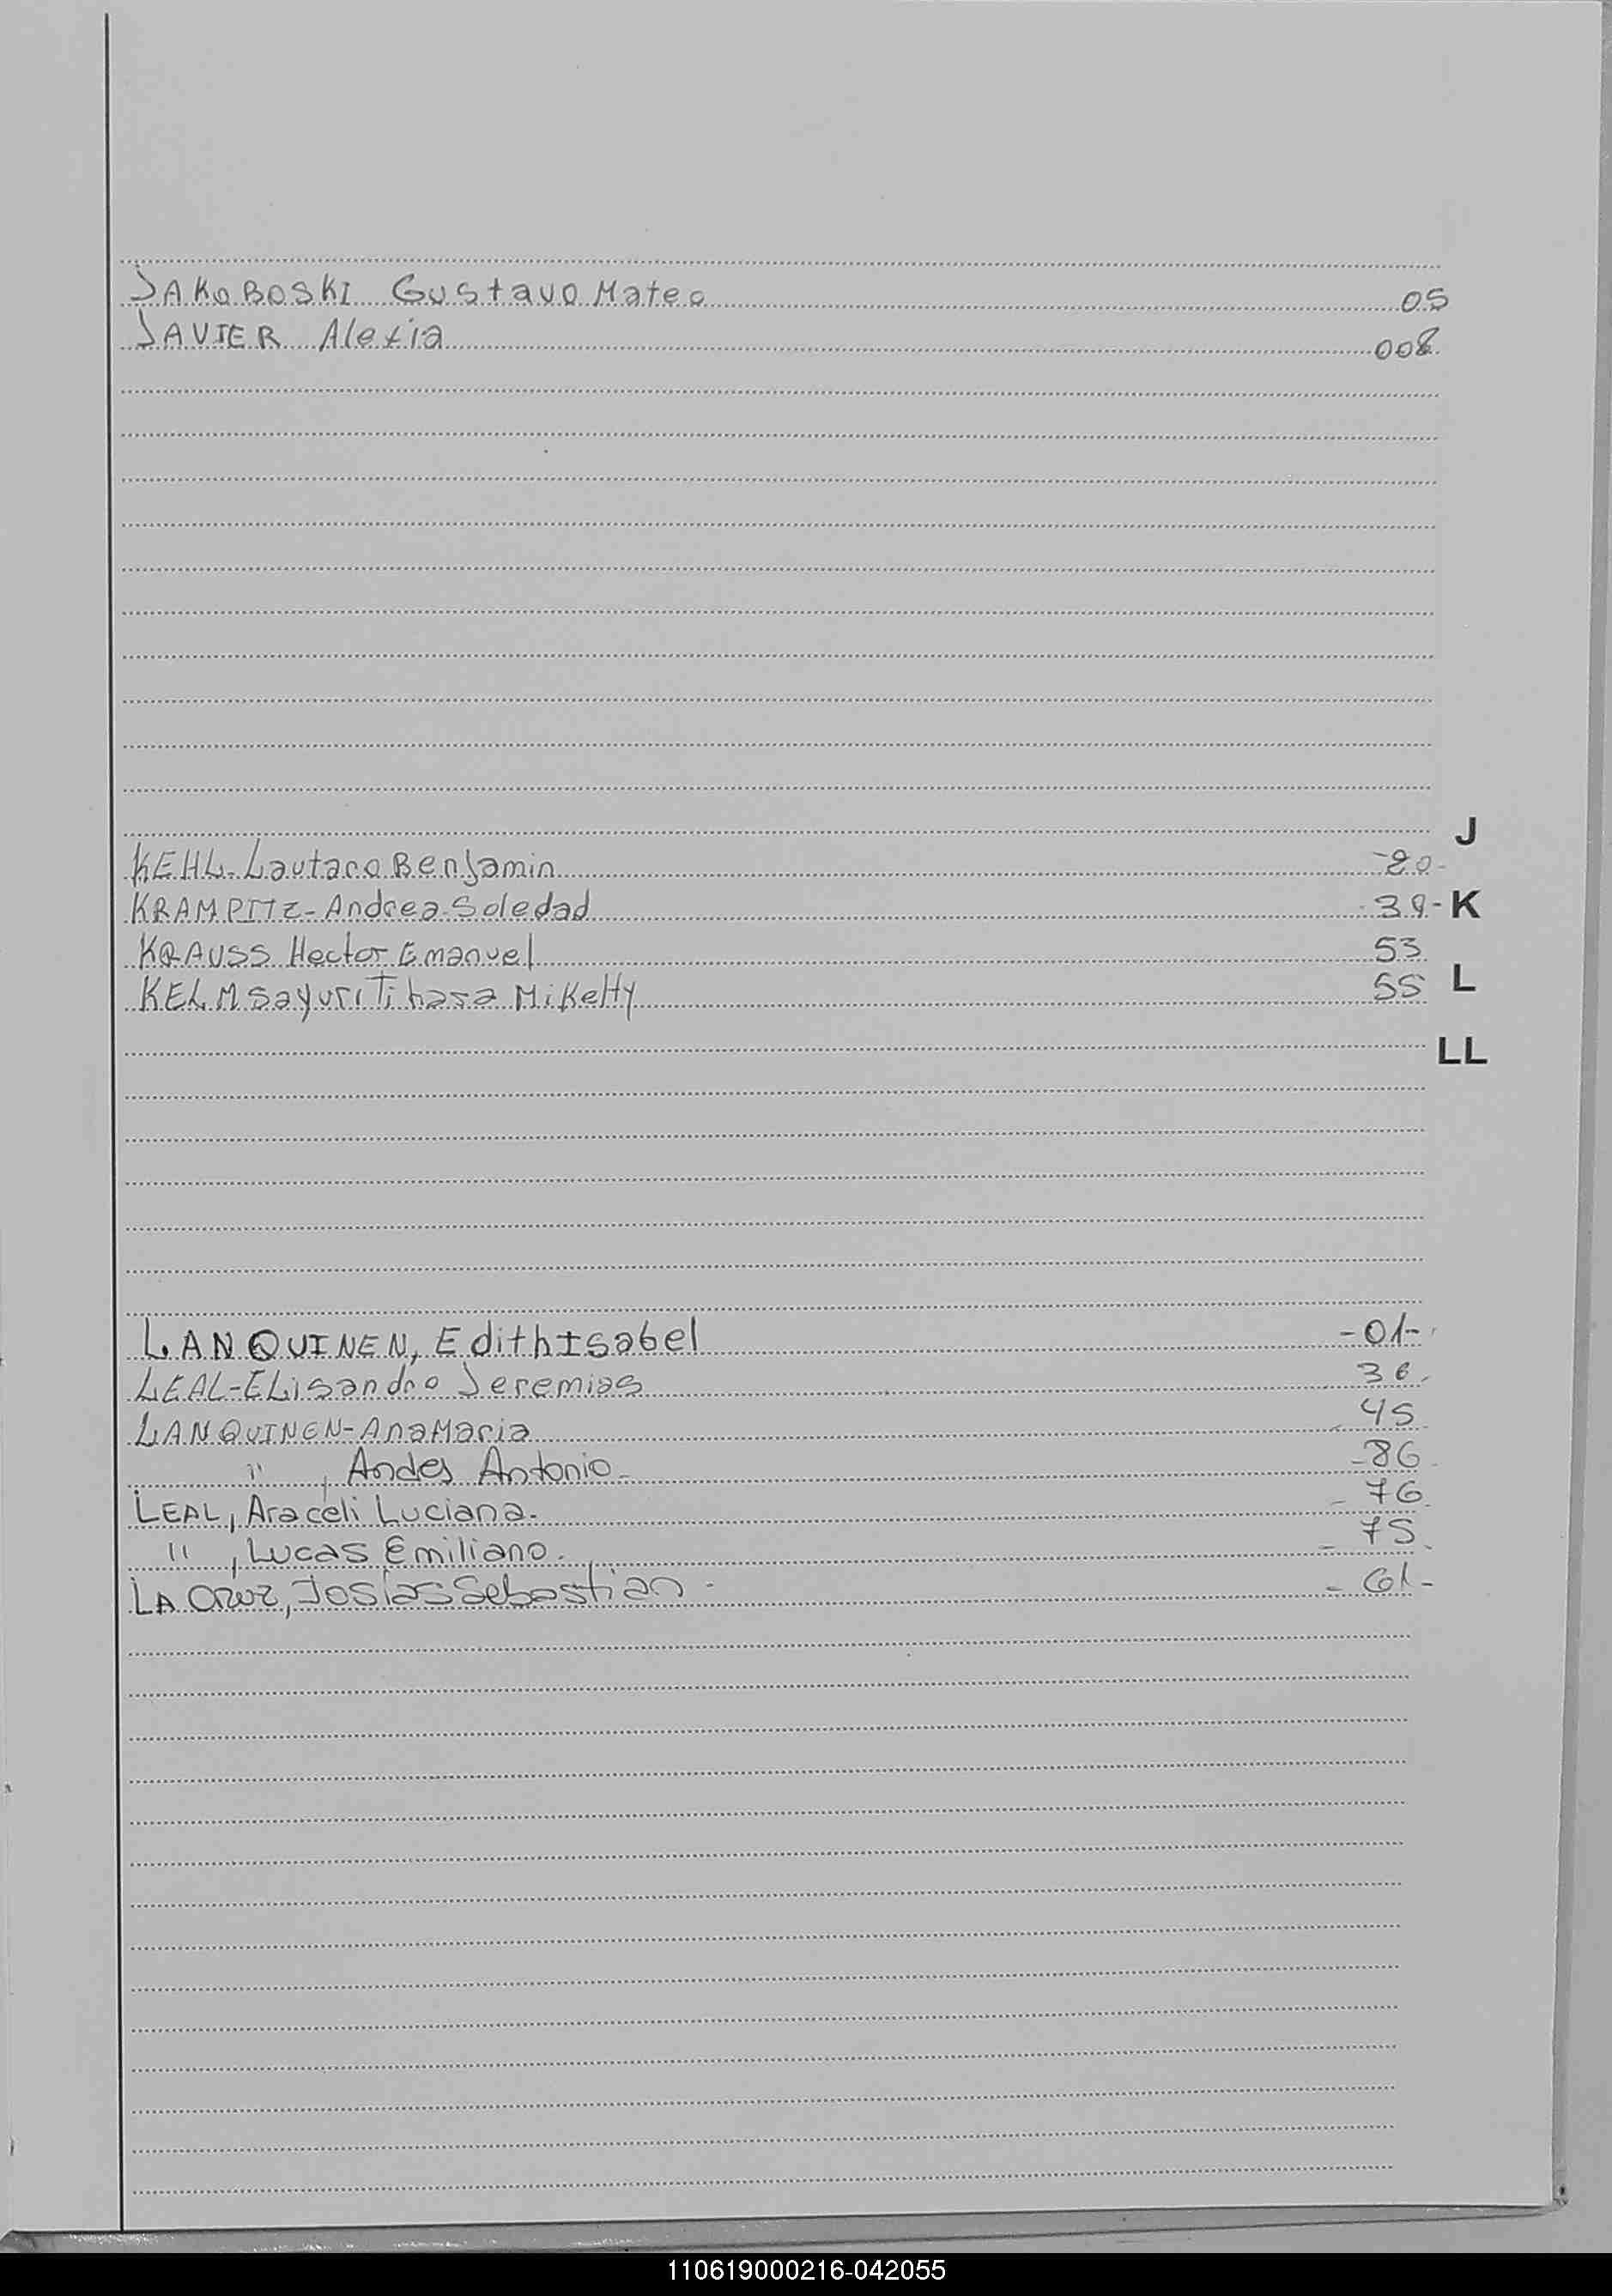 JAKOBOSKI Gustavo Mateo 05
JAVIER Alexia 008
J
KEHL-Lautaro Benjamin -20-
KRAMPITZ-Andrea-Soledad -39- K
KRAUSS Hector Emanuel 53
KELM Sayuri Tihara Miketty 55 L
LL
LANQUINEN, Edith Isabel -01-
LEAL-Elisandro Jeremias 36.
LANQUINEN-Ana Maria - 45
" , Andes Antonio- -86-
LEAL, Araceli Luciana. - 76.
" , Lucas Emiliano. - 75.
LA CRUZ, Josías Sebastian - - 61-
110619000216-042055